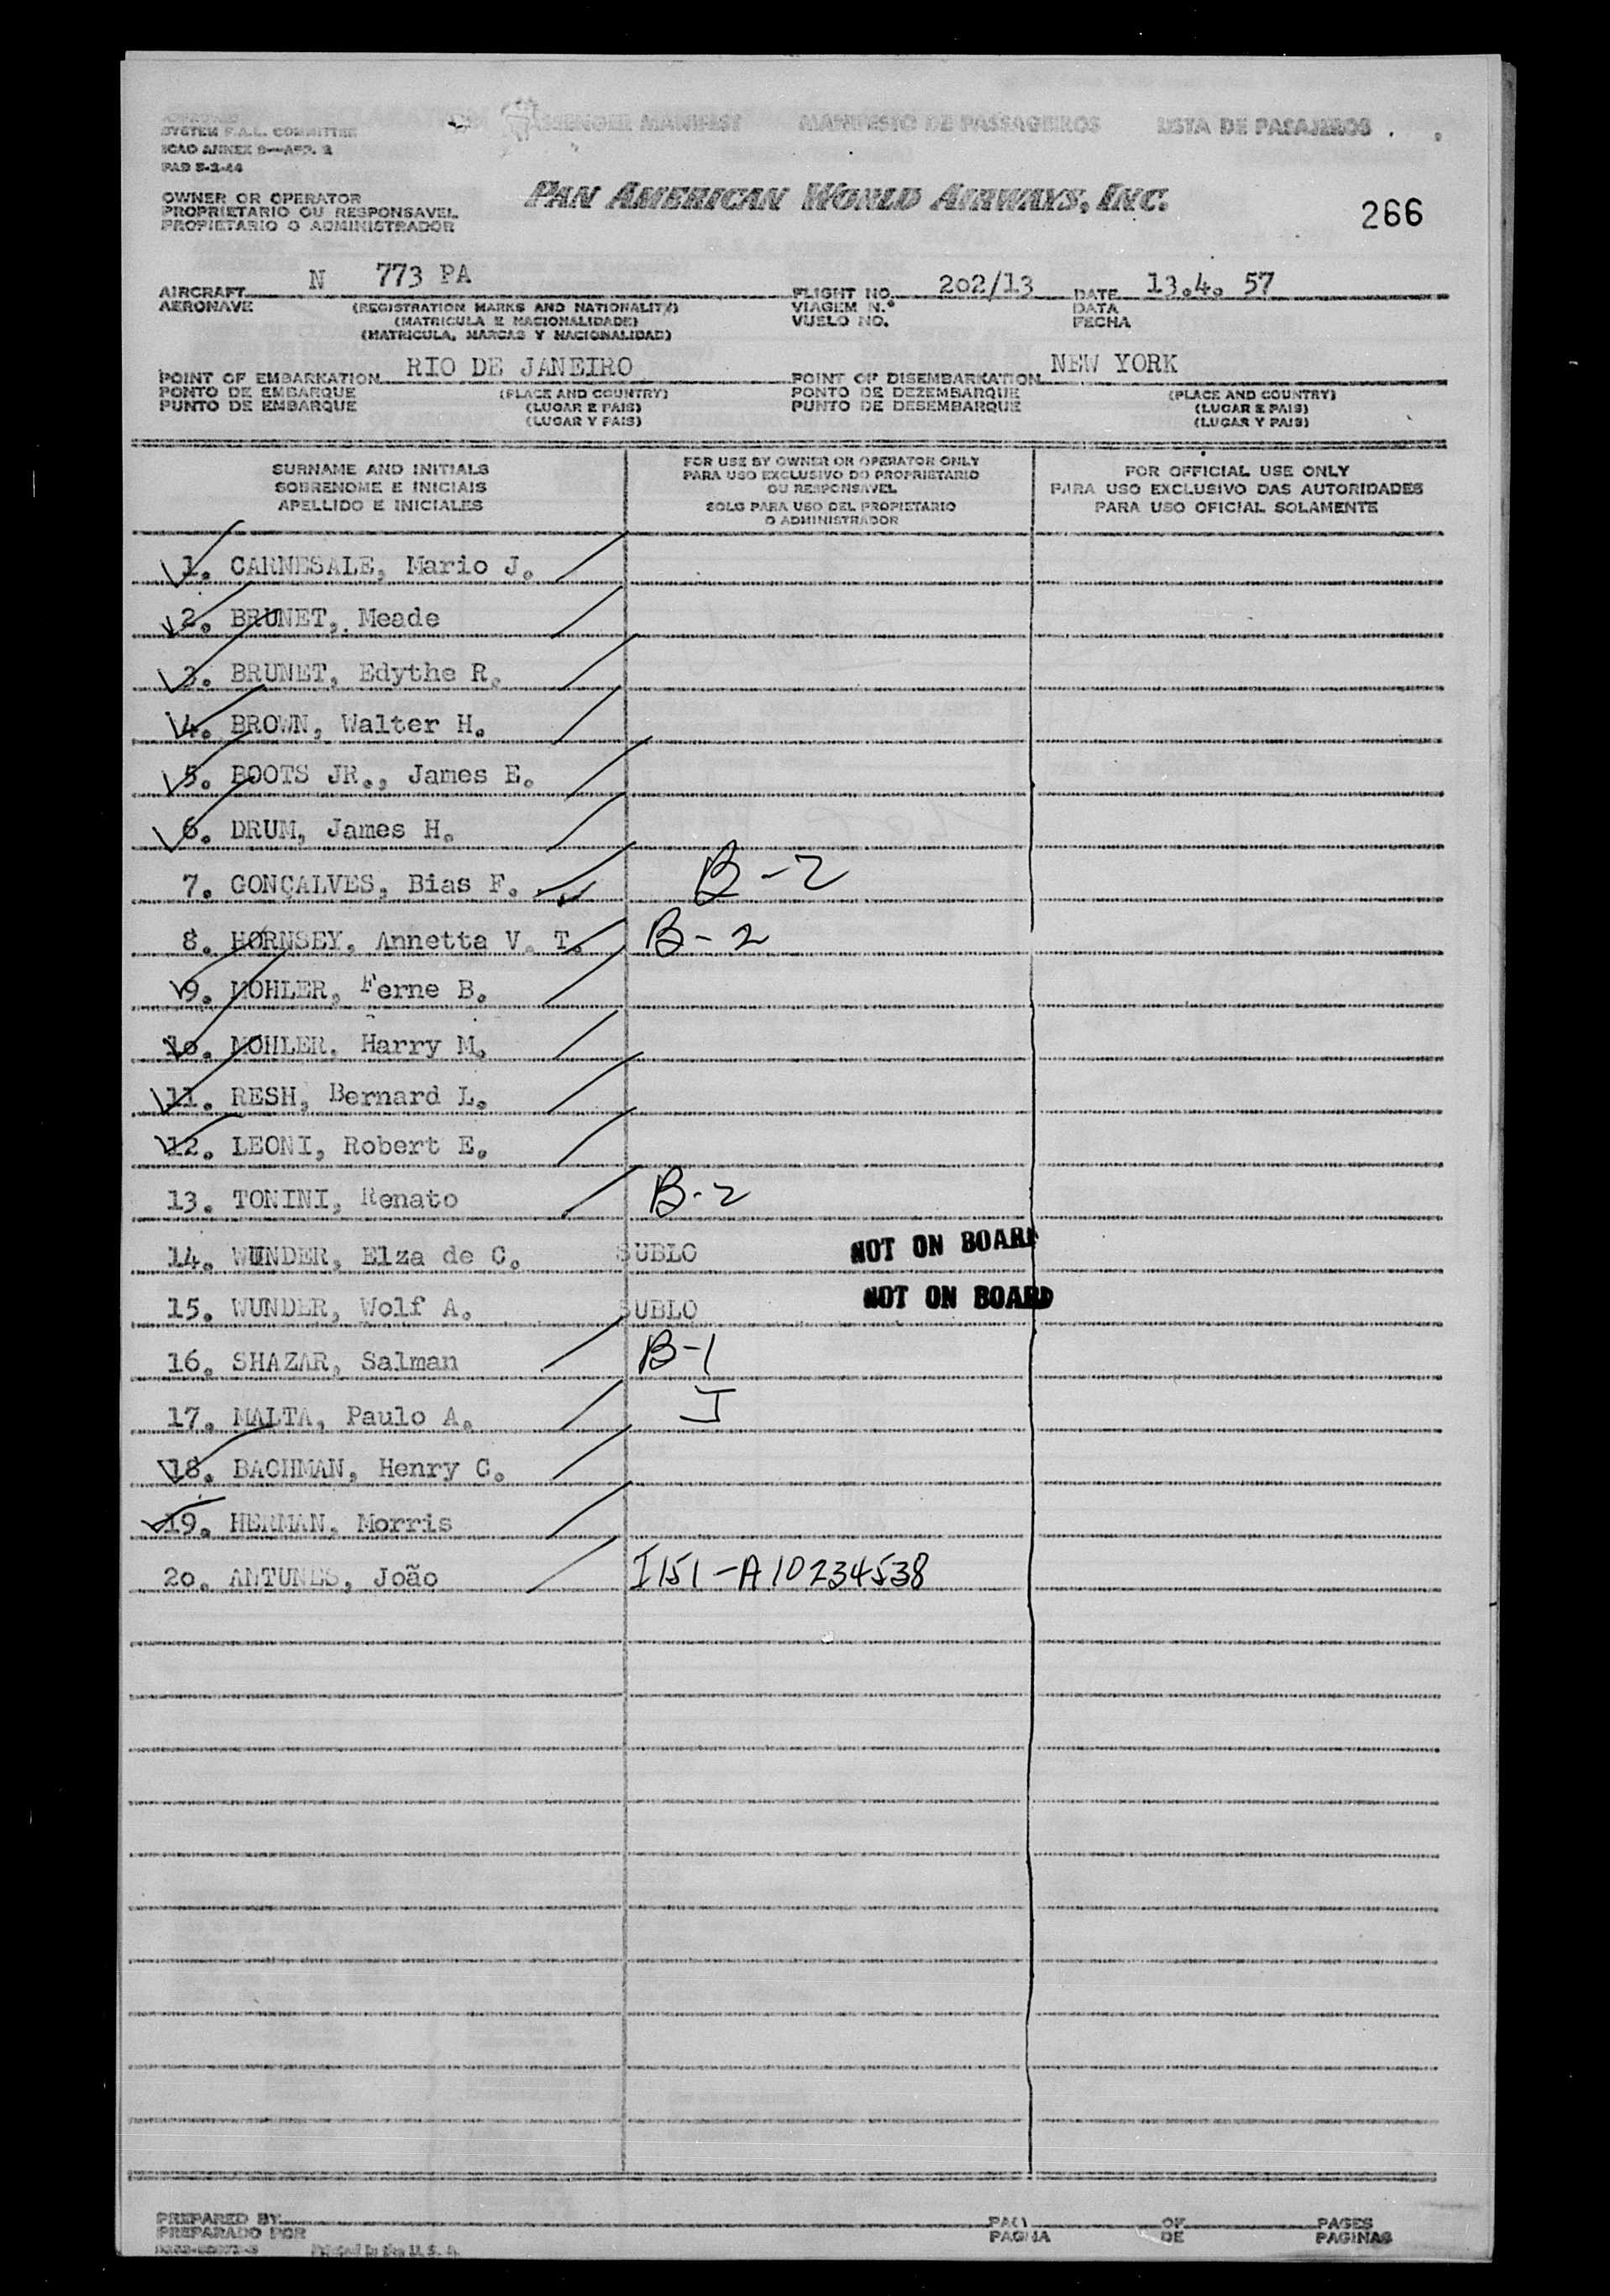 SYSTEM F.A.L. COMMITTEE
ICAO ANNEX 9—APP. 2
PAD 5-2-44
PASSENGER MANIFEST MANIFESTO DE PASSAGEIROS LISTA DE PASAJEROS
OWNER OR OPERATOR
PROPRIETARIO OU RESPONSAVEL
PROPIETARIO O ADMINISTRADOR
PAN AMERICAN WORLD AIRWAYS, INC.
266
AIRCRAFT N 773 PA FLIGHT NO. 202/13 DATE 13.4. 57
AERONAVE (REGISTRATION MARKS AND NATIONALITY) VIAGEM N.º DATA
(MATRICULA E NACIONALIDADE) VUELO NO. FECHA
(MATRICULA, MARCAS Y NACIONALIDAD)
POINT OF EMBARKATION RIO DE JANEIRO POINT OF DISEMBARKATION NEW YORK
PONTO DE EMBARQUE (PLACE AND COUNTRY) PONTO DE DEZEMBARQUE (PLACE AND COUNTRY)
PUNTO DE EMBARQUE (LUGAR E PAIS) PUNTO DE DESEMBARQUE (LUGAR E PAIS)
(LUGAR Y PAIS) (LUGAR Y PAIS)
SURNAME AND INITIALS
SOBRENOME E INICIAIS
APELLIDO E INICIALES
FOR USE BY OWNER OR OPERATOR ONLY
PARA USO EXCLUSIVO DO PROPRIETARIO
OU RESPONSAVEL
SOLO PARA USO DEL PROPIETARIO
O ADMINISTRADOR
FOR OFFICIAL USE ONLY
PARA USO EXCLUSIVO DAS AUTORIDADES
PARA USO OFICIAL SOLAMENTE
1. CARNESALE, Mario J.
2. BRUNET, Meade
3. BRUNET, Edythe R.
4. BROWN, Walter H.
5. BOOTS JR., James E.
6. DRUM, James H.
7. GONÇALVES, Bias F. B-2
8. HORNSEY, Annetta V. T. B-2
9. MOHLER, Ferne B.
10. MOHLER. Harry M.
11. RESH, Bernard L.
12. LEONI, Robert E.
13. TONINI, Renato B-2
14. WUNDER, Elza de C. SUBLO NOT ON BOARD
15. WUNDER, Wolf A. SUBLO NOT ON BOARD
16. SHAZAR, Salman B-1
17. MALTA, Paulo A. I
18. BACHMAN, Henry C.
19. HERMAN, Morris
20. ANTUNES, João I151-A10234538
PREPARED BY PAGE OF PAGES
PREPARADO POR PAGINA DE PAGINAS
Printed in the U. S. A.